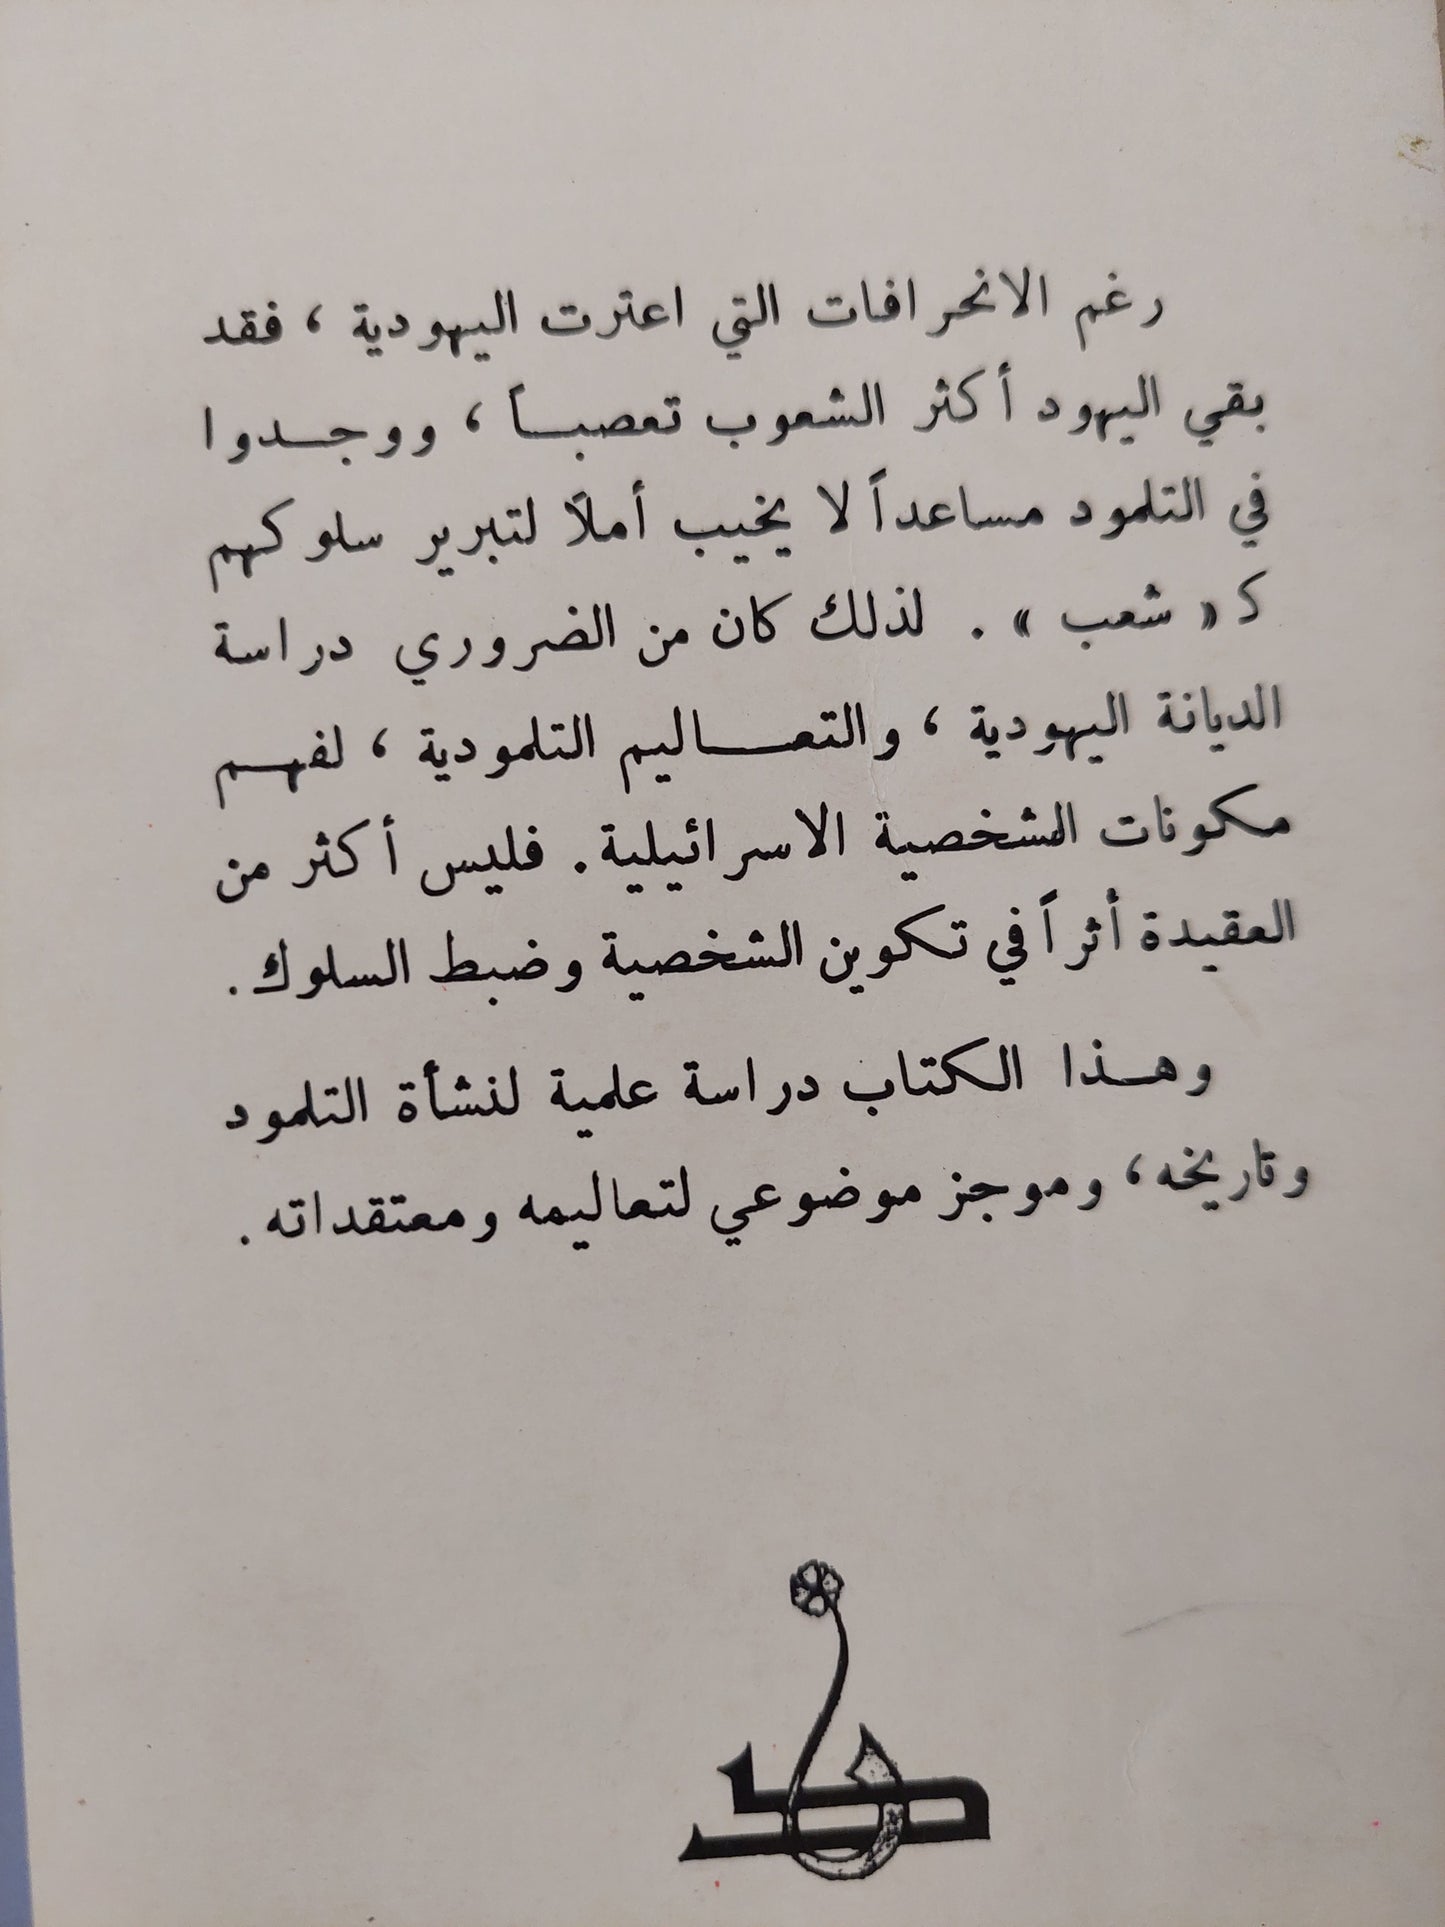 رغم الانحرافات التي اعترت اليهودية ، فقد
بقي اليهود أكثر الشعوب تعصبـاً ، ووجـدوا
في التلمود مساعداً لا يخيب أملاً لتبرير سلوكهم
كـ « شعب » . لذلك كان من الضروري دراسة
الديانة اليهودية ، والتعـاليم التلمودية ، لفهـم
مكونات الشخصية الاسرائيلية . فليس أكثر من
العقيدة أثراً في تكوين الشخصية وضبط السلوك .
وهـذا الكتاب دراسة علمية لنشأة التلمود
وتاريخه ، وموجز موضوعي لتعاليمه ومعتقداته .